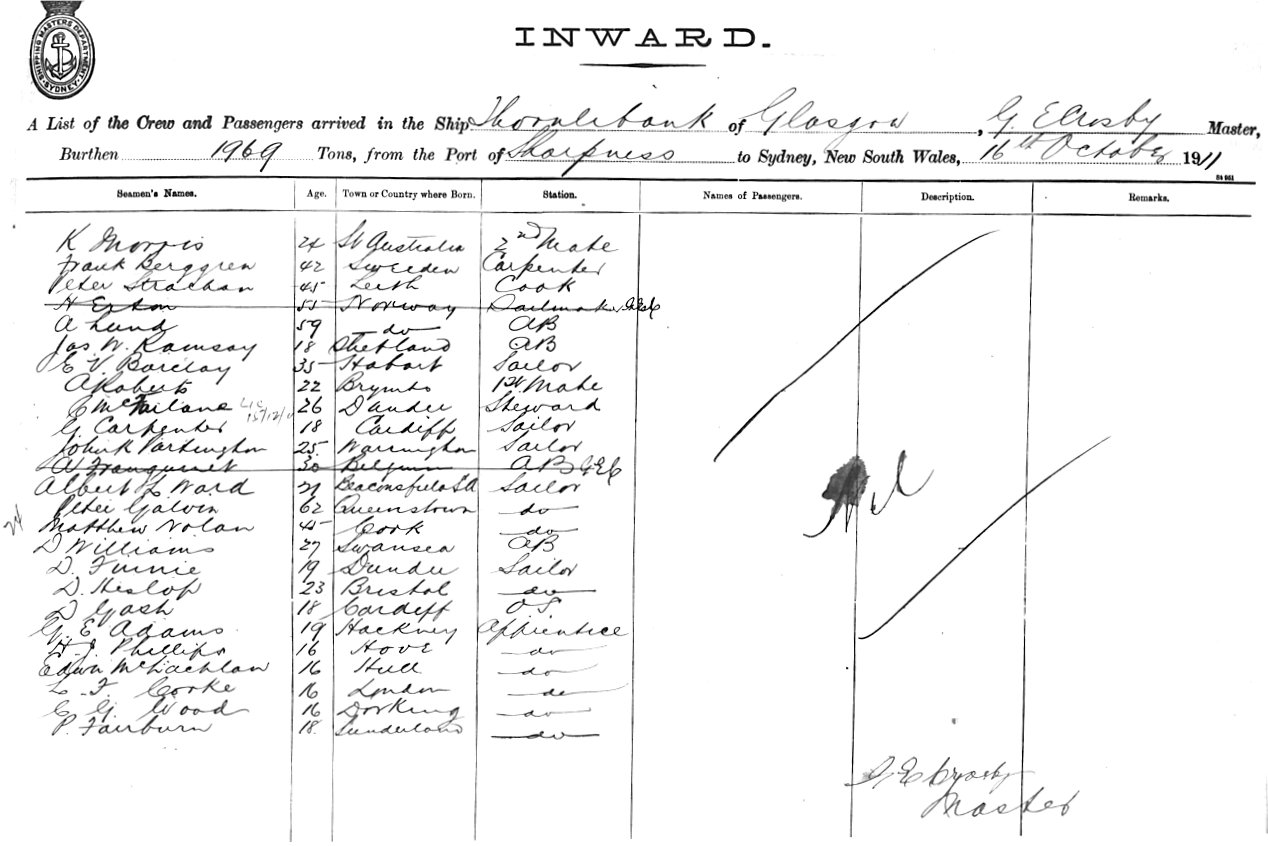 SHIPPING MASTERS DEPARTMENT. SYDNEY.
INWARD.
A List of the Crew and Passengers arrived in the Ship Thornliebank of Glasgow, G. E Crosby Master,
Burthen 1969 Tons, from the Port of Sharpness to Sydney, New South Wales, 16th October 1911
Seamen's Names. Age. Town or Country where Born. Station. Names of Passengers. Description. Remarks.
K Morris 24 St Australia 2nd Mate
Frank Berggren 42 Sweeden Carpenter
Peter Strachan 45 Leith Cook
55 Norway Sailmaker
A Lund 59 do AB
Jas W. Ramsay 18 Shetland AB
E V. Barclay 35 Hobart Sailor
A Roberts 22 1st Mate
C McFarlane 26 Dundee Steward
G Carpenter 18 Cardiff Sailor
John K Partington 25 Warrington Sailor
A Franquinet 30 Belgium AB G.E.C
Albert L Ward 21 Beaconsfield S.A Sailor
Nil
Peter Galvin 62 Queenstown do
24 Matthew Nolan 45 Cork do
D Williams 27 Swansea AB
D. Finnie 19 Dundee Sailor
D. Heslop 23 Bristol do
D Gash 18 Cardiff OS
G. E Adams 19 Hackney Apprentice
H. J. Phillips 16 Hove do
Edwin McLachlan 16 Hull do
L. F. Cooke 16 London do
C G. Wood 16 Dorking do
P. Fairburn 18 Sunderland do
G. E Crosby
Master